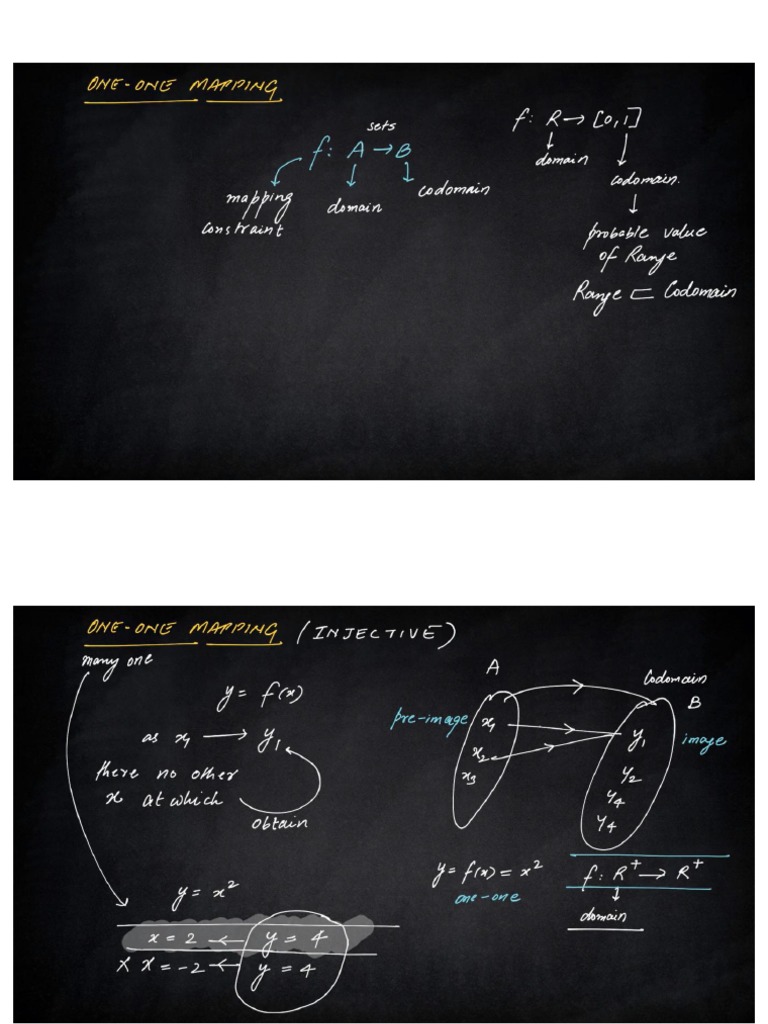 ONE-ONE MAPPING
sets
f: A → B
mapping constraint
domain
codomain
f: R → [0,1]
domain
codomain.
probable value
of Range
Range ⊏ Codomain
ONE-ONE MAPPING (INJECTIVE)
many one
y = f(x)
as x₁ → y₁
there no other
x at which
obtain
y = x²
x = 2 ← y = 4
X x = -2 ← y = 4
A
Codomain
B
pre-image
x₁
x₂
x₃
y₁
image
y₂
y₄
y₄
y = f(x) = x²
one-one
f: R⁺ → R⁺
domain